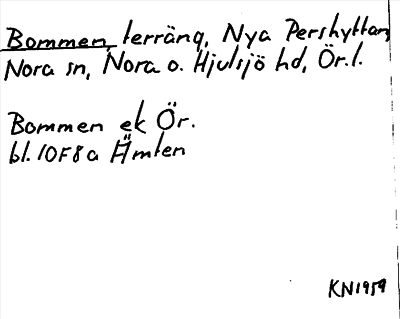 Bommen, terräng, Nya Pershyttan
Nora sn, Nora o. Hjulsjö hd, Ör.l.
Bommen ek Ör.
bl. 10F8a Ämten
KN1959